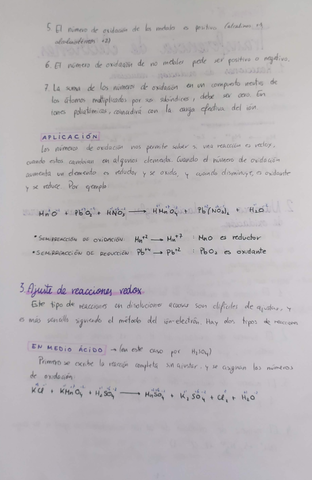 5. El número de oxidación de los metales es positivo (alcalinos +1
alcalinotérreos +2)
6. El número de oxidación de los no metales puede ser positivo o negativo.
7. La suma de los números de oxidación en un compuesto neutro de
los átomos multiplicados por su subíndice, debe ser cero. En
iones poliatómicos, coincidirá con la carga efectiva del ión.
APLICACIÓN
Los números de oxidación nos permite saber si una reacción es redox,
cuando estos cambian en algunos elementos. Cuando el número de oxidación
aumenta un elemento es reductor y se oxida, y cuando disminuye, es oxidante
y se reduce. Por ejemplo:
MnO + PbO₂ + HNO₃ → HMnO₄ + Pb(NO₃)₂ + H₂O
*SEMIRREACCIÓN DE OXIDACIÓN: Mn⁺² → Mn⁺⁷ : MnO es reductor
*SEMIRREACCIÓN DE REDUCCIÓN: Pb⁺⁴ → Pb⁺² : PbO₂ es oxidante
3. Ajuste de reacciones redox
Este tipo de reacciones en disoluciones acuosas son difíciles de ajustar, y
es más sencillo siguiendo el método del ión-electrón. Hay dos tipos de reacciones
EN MEDIO ÁCIDO → (en este caso por H₂SO₄)
Primero se escribe la reacción completa sin ajustar, y se asignan los números
de oxidación
KCl + KMnO₄ + H₂SO₄ → MnSO₄ + K₂SO₄ + Cl₂ + H₂O